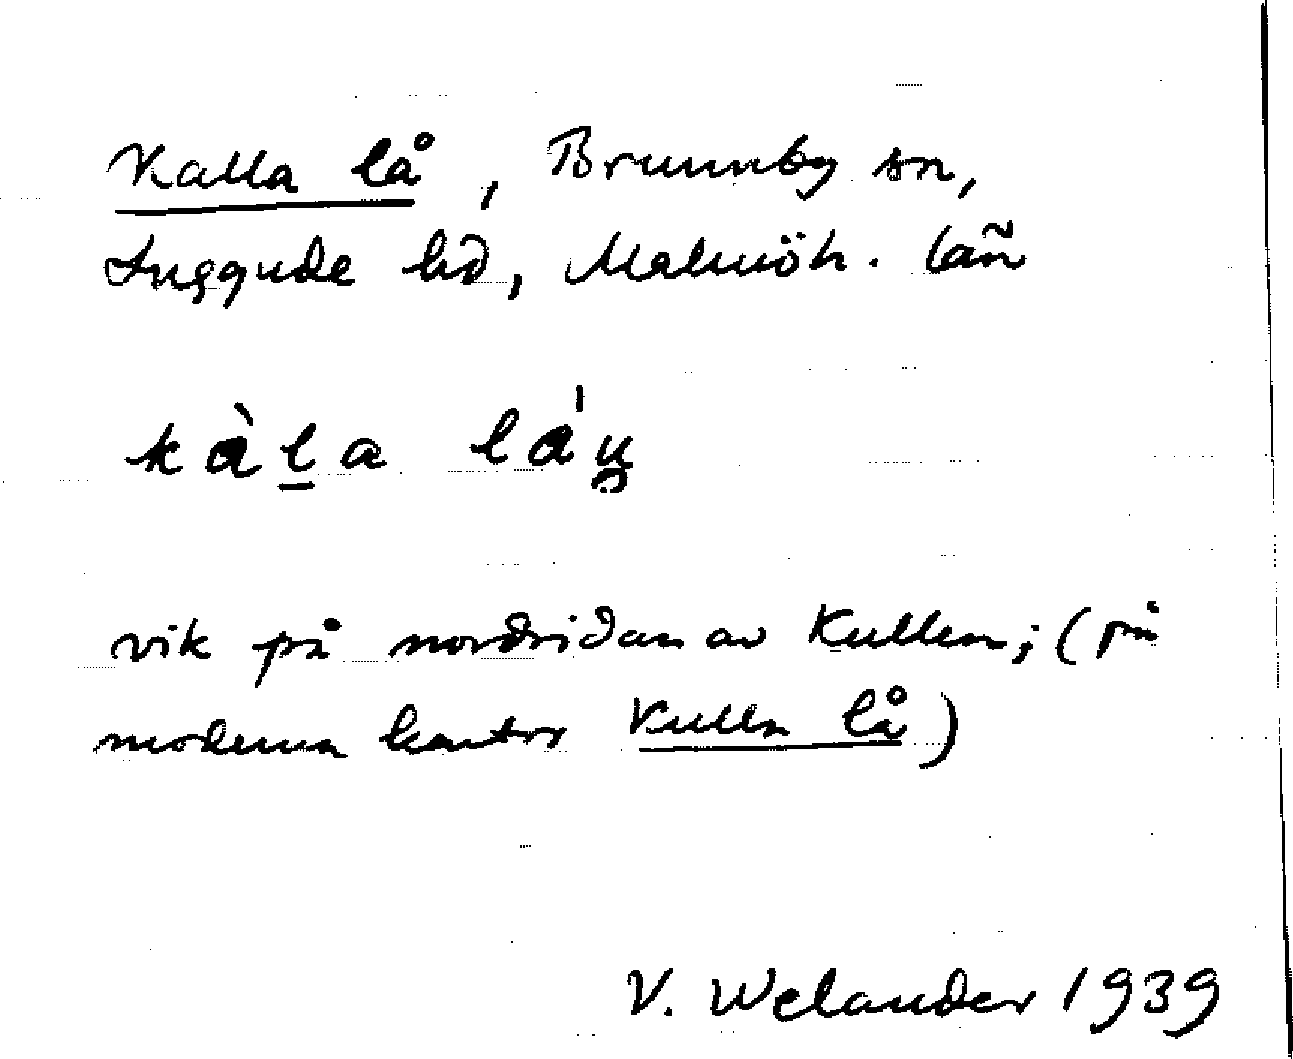 Kalla lå, Brunnby sn,
Luggude hd, Malmöh. län
kàl̲a láu̯
vik på nordsidan av Kullen; (på
moderna kartor Kulla lå)
V. Welander 1939